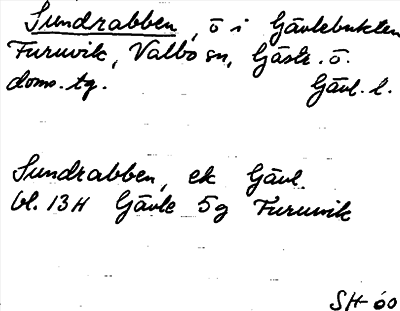 Sundrabben, ö i Gävlebukten
Furuvik, Valbo sn, Gästr. ö.
doms. tg. Gävl. l.
Sundrabben, ek Gävl.
bl. 13H Gävle 5g Furuvik
SH-60